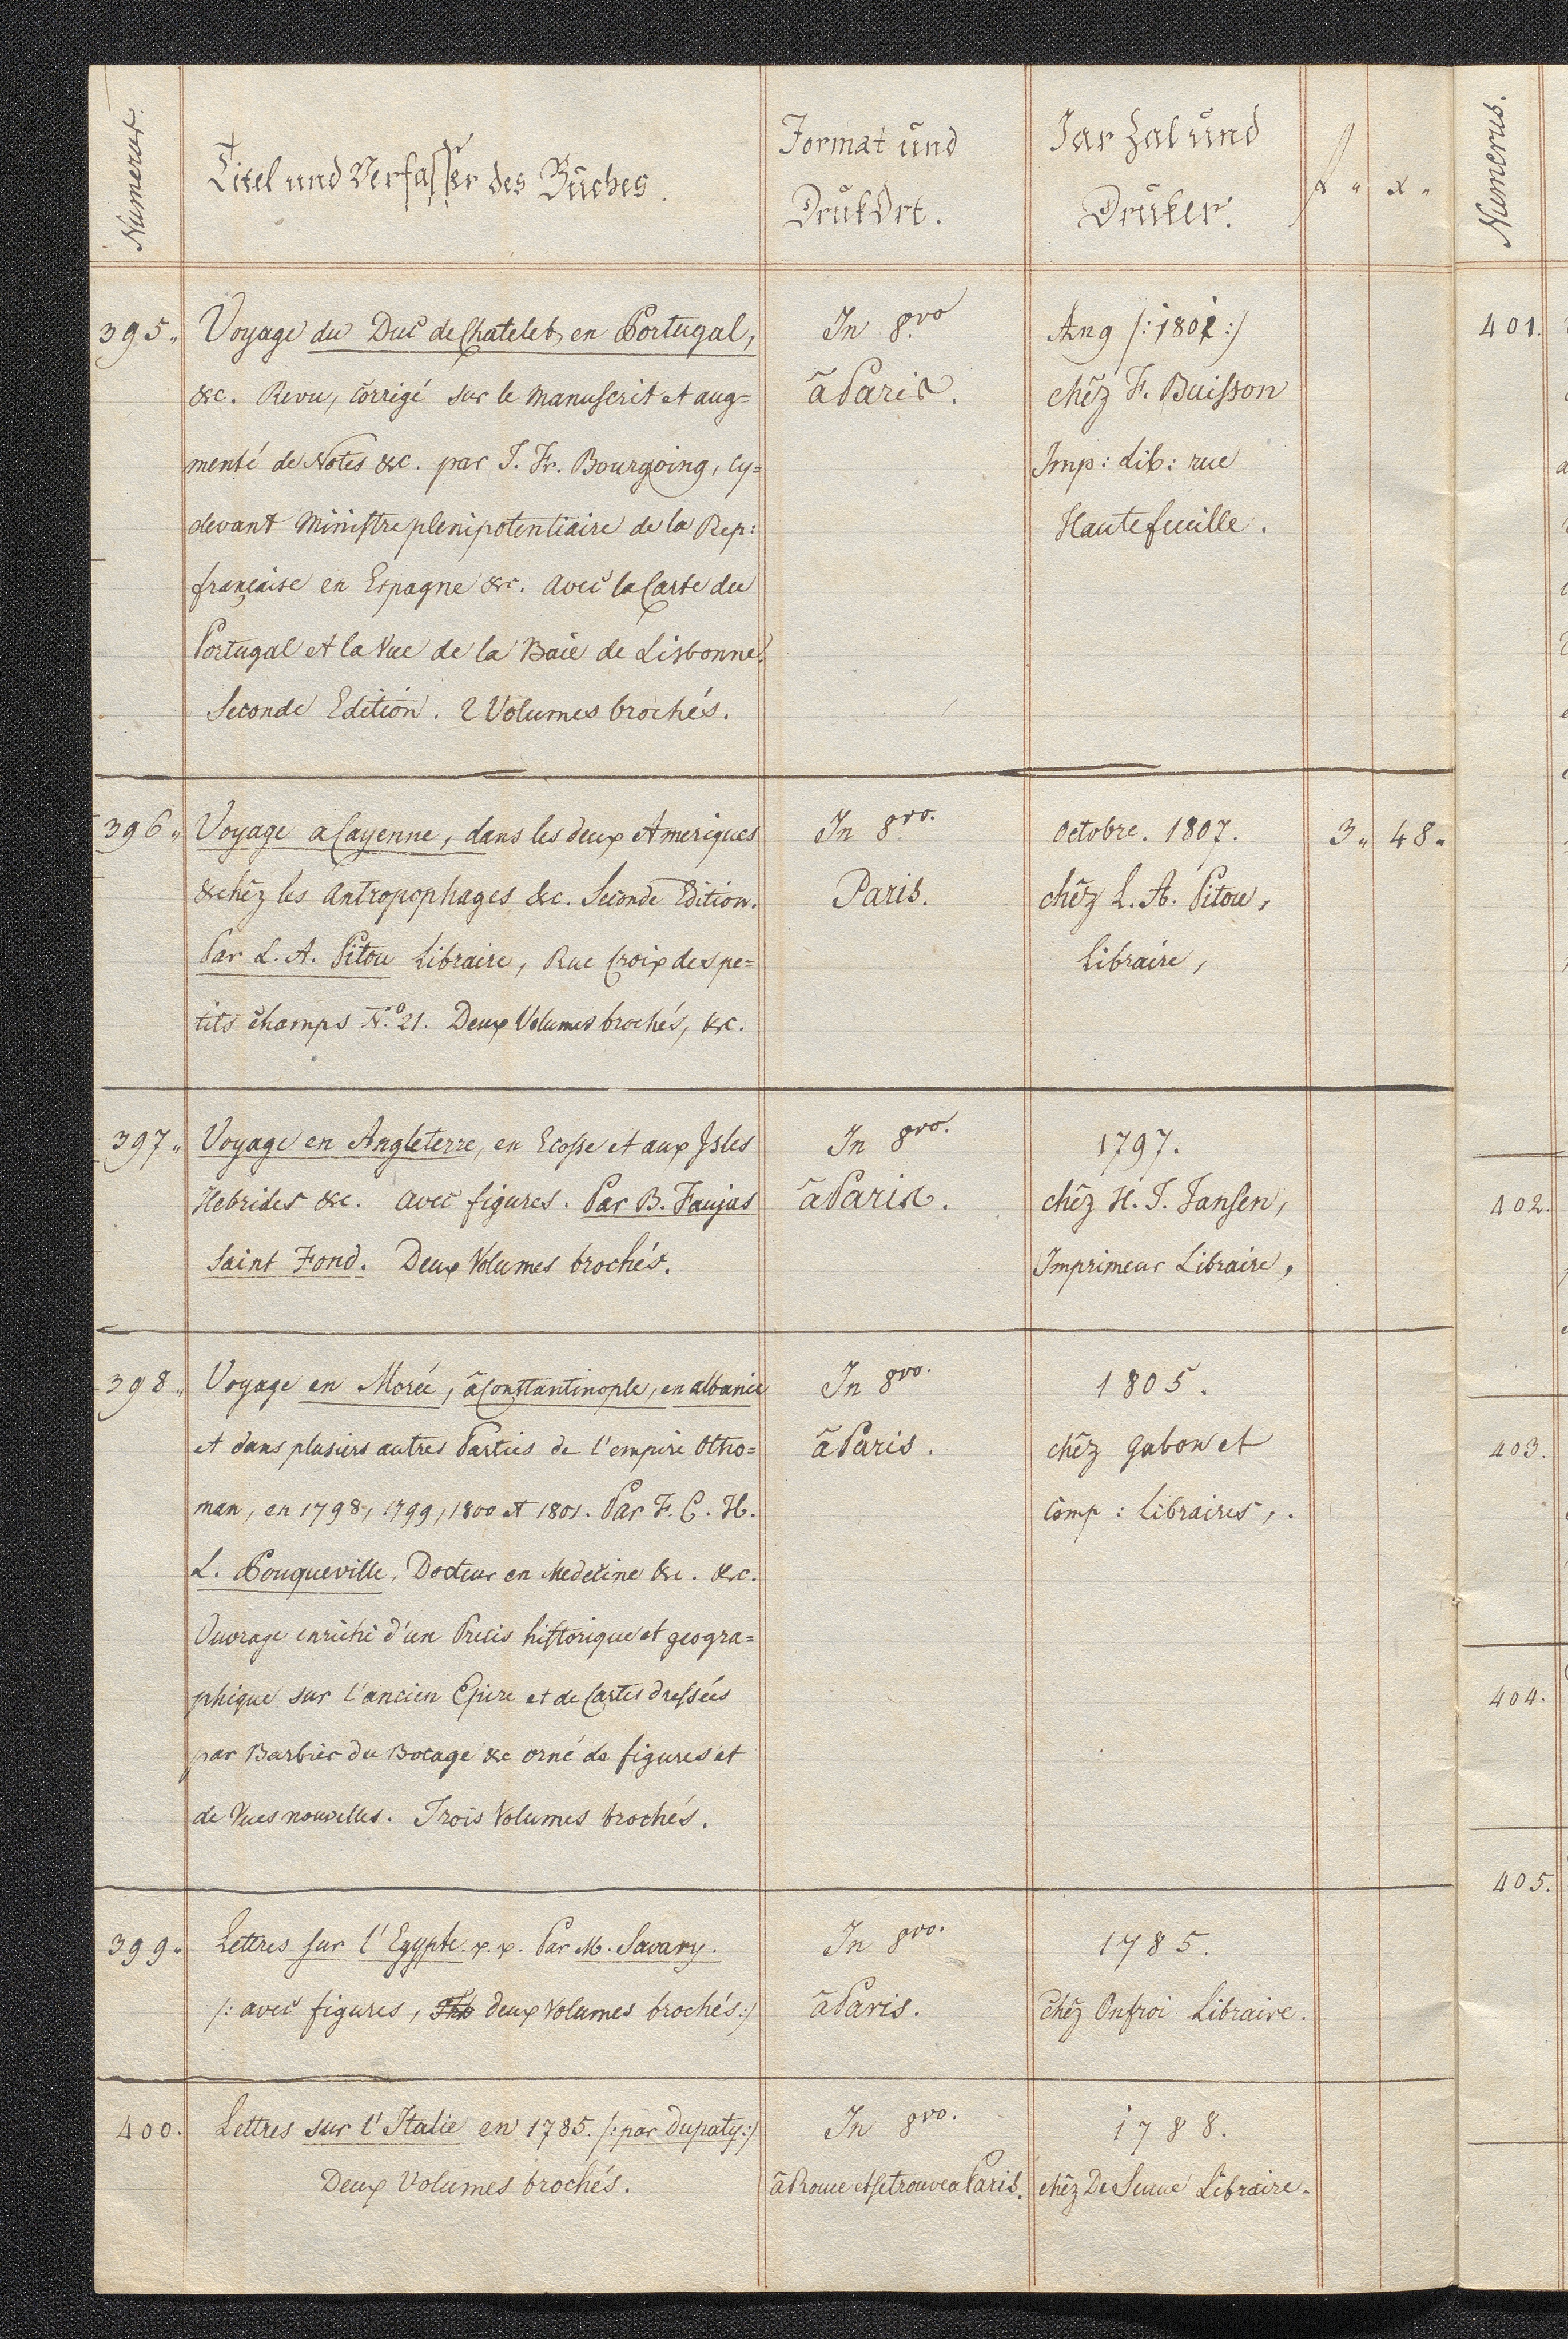 Numerus.
Titel und Verfasser des Buches.
Format und
DrukOrt.
Jar Zal und
Druker.
f " x "
Numerus.
395. Voyage du Duc de Chatelet, en Portugal,
&c. Revu, corrigé sur le Manuscrit et aug=
menté de Notes &c. par J. Fr. Bourgoing, cy=
devant Ministre plenipotentiaire de la Rep:
française en Espagne &c. avec la Carte du
Portugal et la Vue de la Baie de Lisbonne.
Seconde Edition. 2 Volumes brochés.
In 8vo
à Paris.
An 9 /:1801:/
chêz F. Buisson
Imp: lib: rue
Hautefeuille.
396. Voyage a Cayenne, dans les deux Ameriques
& chêz les Antropophages &c. Seconde Edition.
Par L. A. Pitou Libraire, Rue Croix des pe=
tits champs No. 21. Deux Volumes brochés, &c.
In 8vo.
Paris.
Octobre. 1807.
chêz L. A. Pitou,
Libraire,
3 " 48 "
397. Voyage en Angleterre, en Ecosse et aux Isles
Hebrides &c. avec figures. Par B. Faujas
Saint Fond. Deux Volumes brochés.
In 8vo.
à Paris.
1797.
chêz H. J. Jansen,
Imprimeur Libraire,
398. Voyage en Morée, à Constantinople, en albanie
et dans plusiers autres Parties de l'empire Otho=
man, en 1798, 1799, 1800 et 1801. Par F. C. H.
L. Pouqueville, Docteur en Medecine &c. &c.
Ouvrage enrichi d'un Precis historique et geogra=
phique sur l'ancien Epire et de Cartes dressées
par Barbier du Bocage &c orné de figures et
de Vues nouvelles. Trois Volumes brochés.
In 8vo.
à Paris.
1805.
chêz Gabon et
Comp: Libraires,.
399. Lettres sur l'Egypte. x. x. Par M. Savary.
/: avec figures, deux Volumes brochés:/
In 8vo.
à Paris.
1785.
Chêz Onfroi Libraire.
400. Lettres sur l'Italie en 1785. /: par Dupaty:/
Deux Volumes brochés.
In 8vo.
à Rome et se trouve a Paris.
1788.
chêz De Senne Libraire.
401.
402.
403.
404.
405.